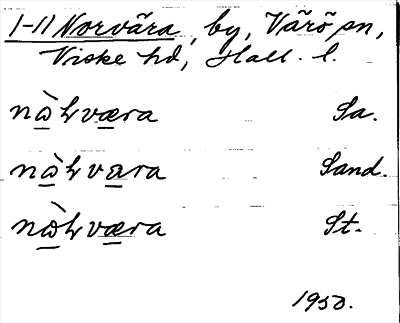 1-11 Norvära, by, Värö sn,
Viske hd, Hall. l.
nὼhværa Sa.
nὼhvara Sand.
nὼhværa St.
1950.